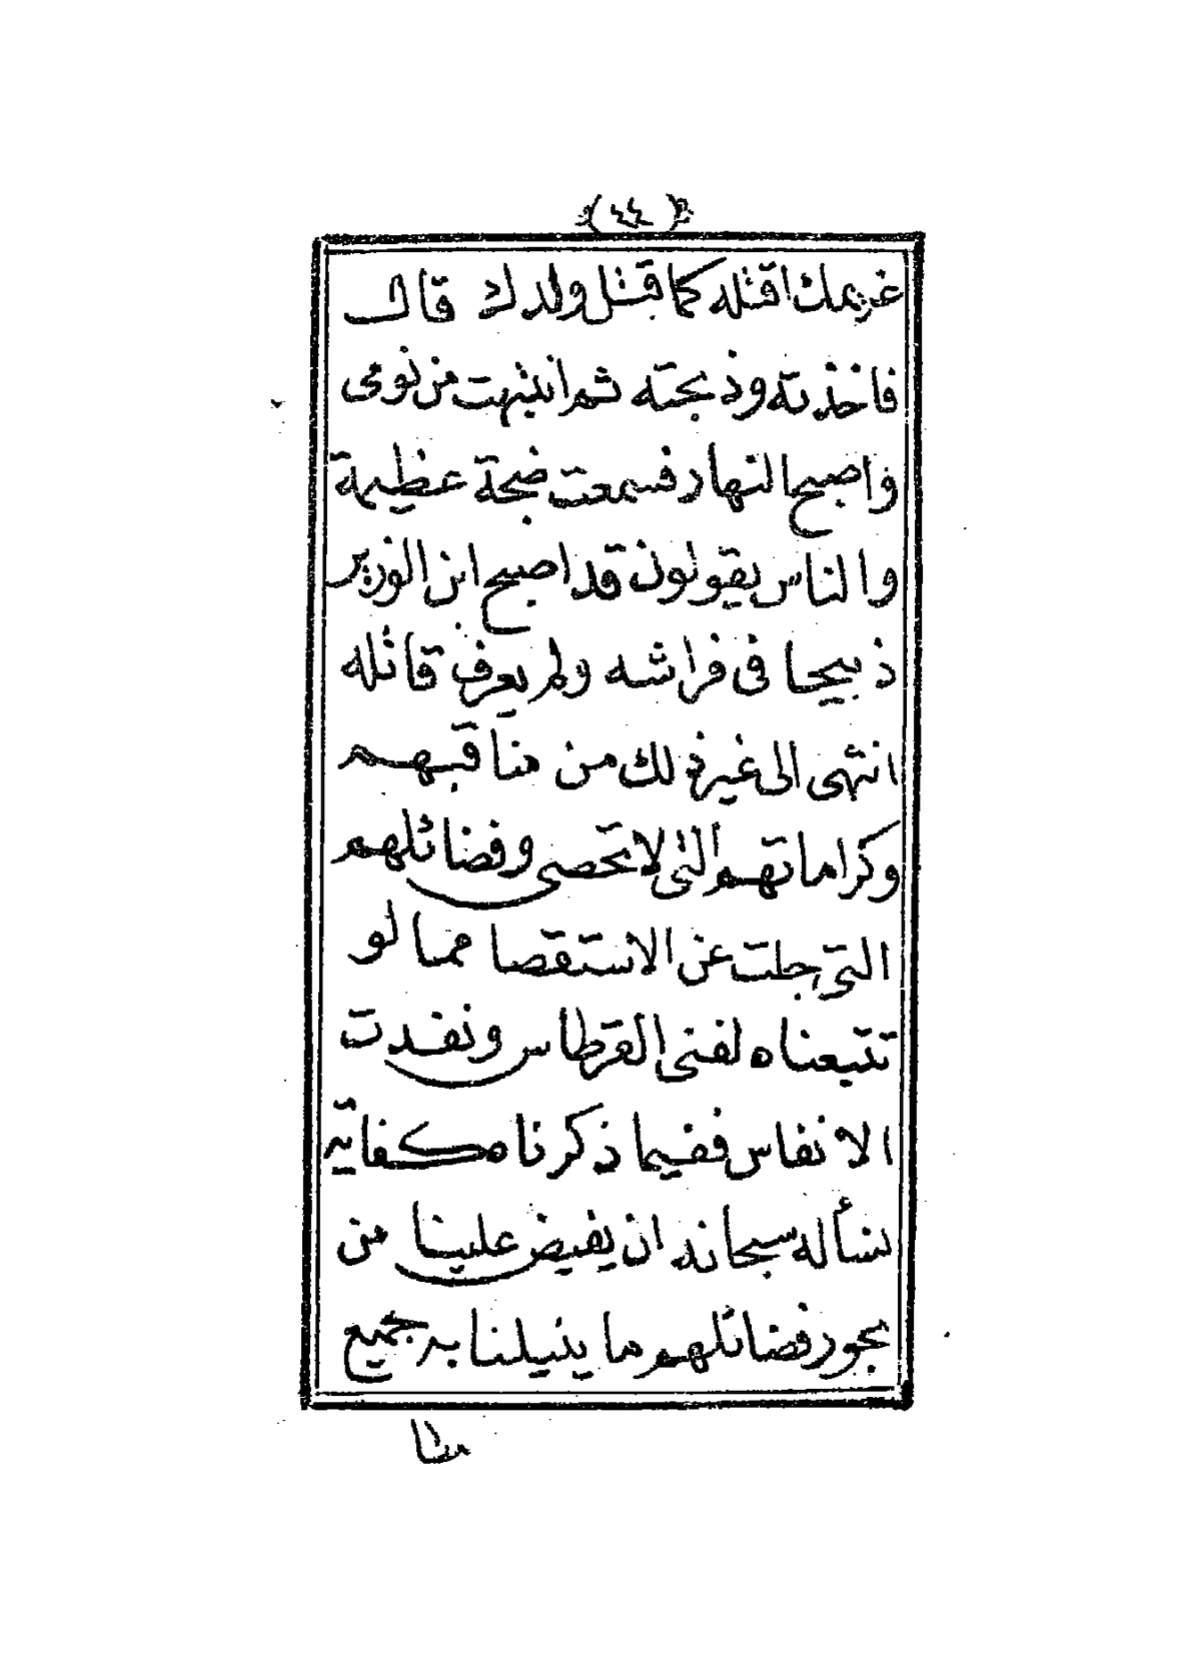 (٤٤)
غريمك اقتله كما قتل ولدك قال
فاخذته وذبحته ثم انتبهت من نومى
واصبح النهار فسمعت ضجة عظيمة
والناس يقولون قد اصبح ابن الوزير
ذبيحا فى فراشه ولم يعرف قاتله
انتهى الى غير ذلك من مناقبهم
وكراماتهم التى لا تحصى وفضائلهم
التى جلت عن الاستقصا مما لو
تتبعناه لفنى القرطاس ونفدت
الانفاس ففيما ذكرناه كفاية
نسأله سبحانه ان يفيض علينا من
بحور فضائلهم ما ينيلنا به جميع